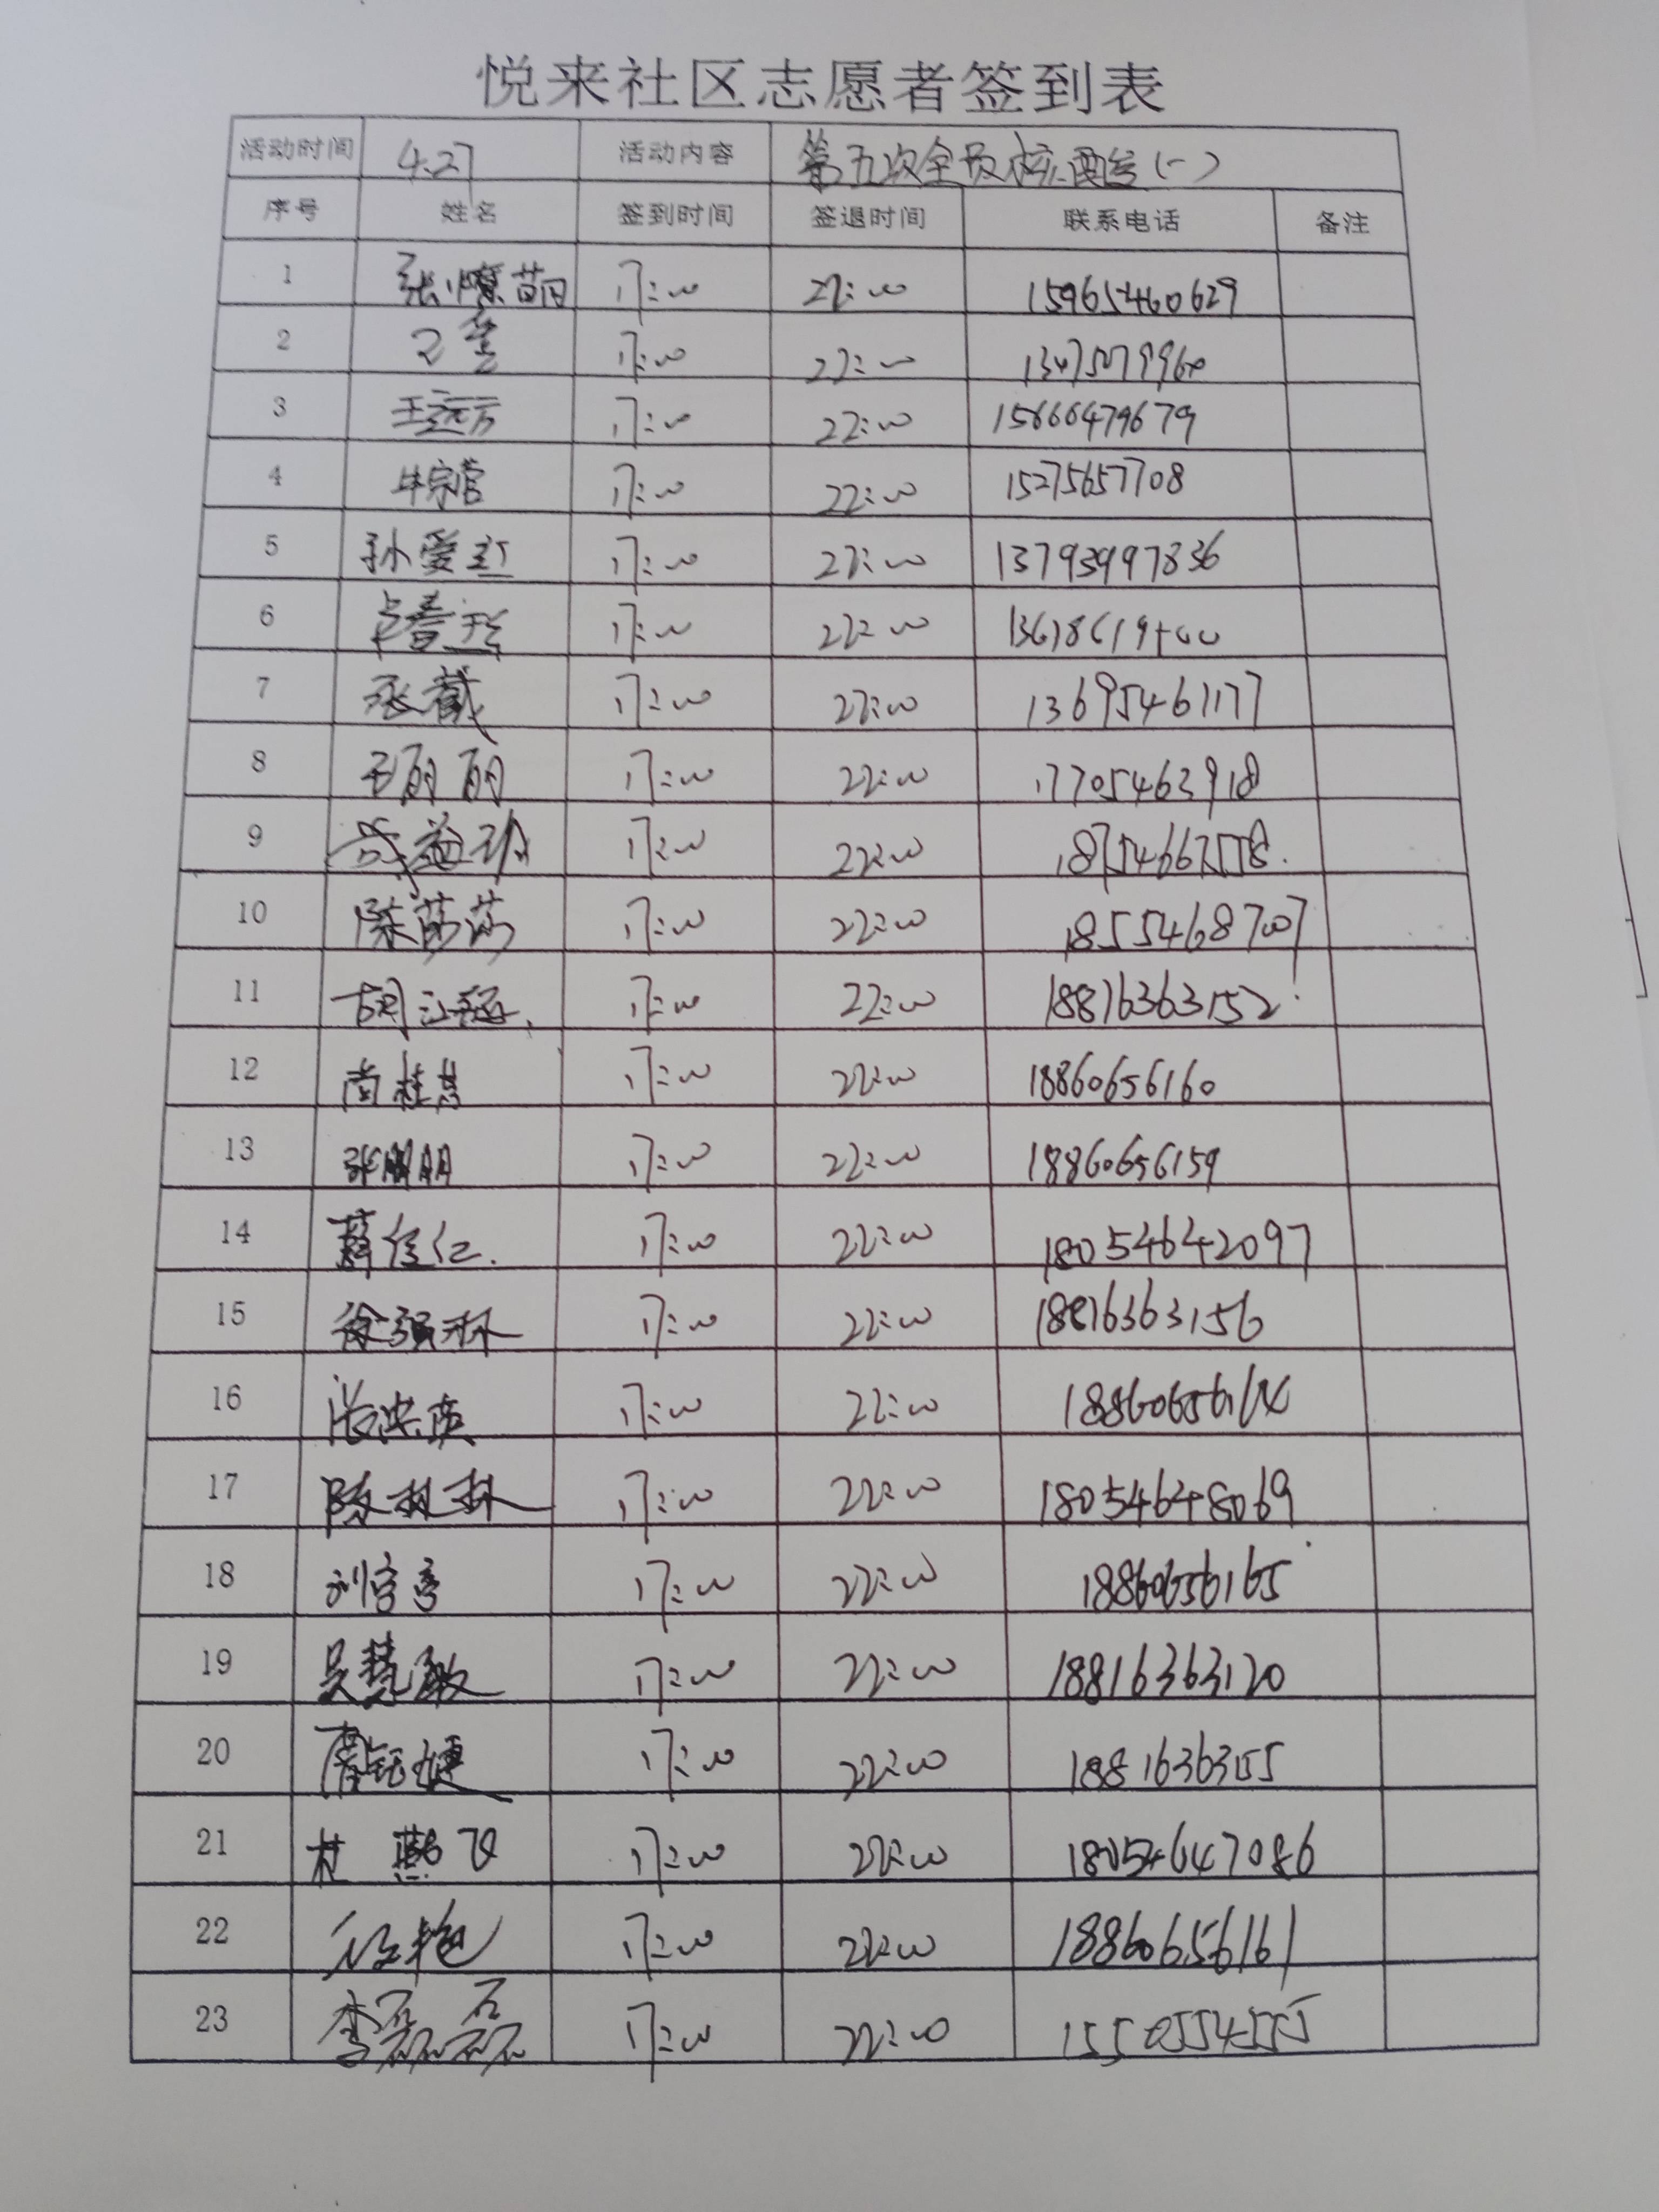 悦来社区志愿者签到表
活动时间 4.27 活动内容 第五次全员核酸(一)
序号 姓名 签到时间 签退时间 联系电话 备注
1 17:00 22:00 15965460629
2 17:00 22:00
3 王远方 17:00 22:00 15666479679
4 牛宗营 17:00 22:00 15275657708
5 孙爱红 17:00 22:00 13793997836
6 17:00 22:00
7 张戴 17:00 22:00 13695461177
8 王丽丽 17:00 22:00 17705463918
9 17:00 22:00
10 陈荷荷 17:00 22:00 18554687007
11 胡 17:00 22:00 18816363152
12 尚桂慧 17:00 22:00 18860656160
13 张朋朋 17:00 22:00 18860656159
14 薛佳仁. 17:00 22:00 18054642097
15 徐强林 17:00 22:00 18816363156
16 17:00 22:00
17 陈林林 17:00 22:00 18054648069
18 17:00 22:00 18860656165
19 吴慧敏 17:00 22:00 18816363120
20 17:00 22:00 18816363155
21 杜燕飞 17:00 22:00 18054647086
22 任艳 17:00 22:00 18860656161
23 李磊磊 17:00 22:00 15505545555